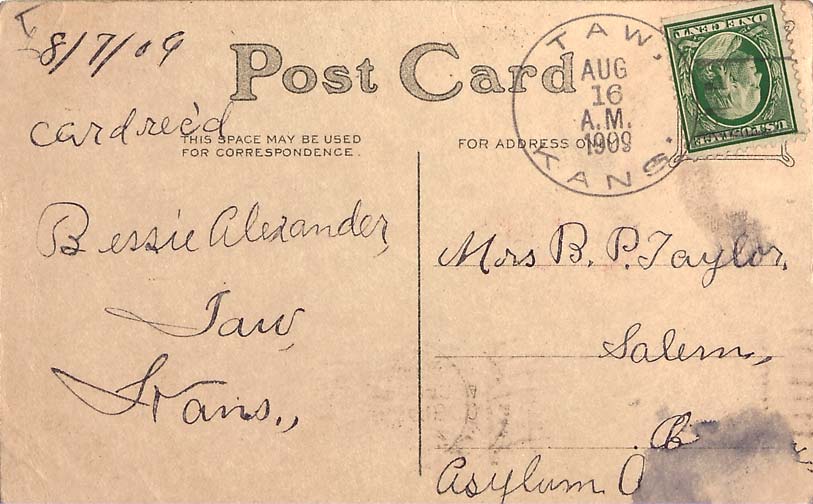 8/7/09
Post Card
card rec'd
THIS SPACE MAY BE USED
FOR CORRESPONDENCE.
FOR ADDRESS ONLY
TAW, KANS.
AUG
16
A.M.
1909
ONE CENT
U.S. POSTAGE
Bessie Alexander,
Taw,
Kans.,
Mrs B. P. Taylor,
Salem,
Asylum